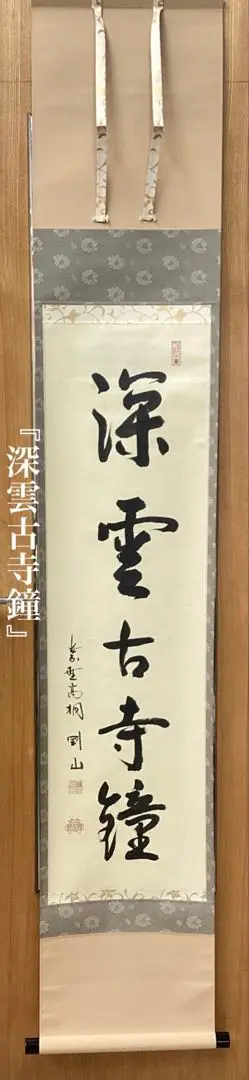 深雲古寺鐘
紫野高桐剛山
『深雲古寺鐘』